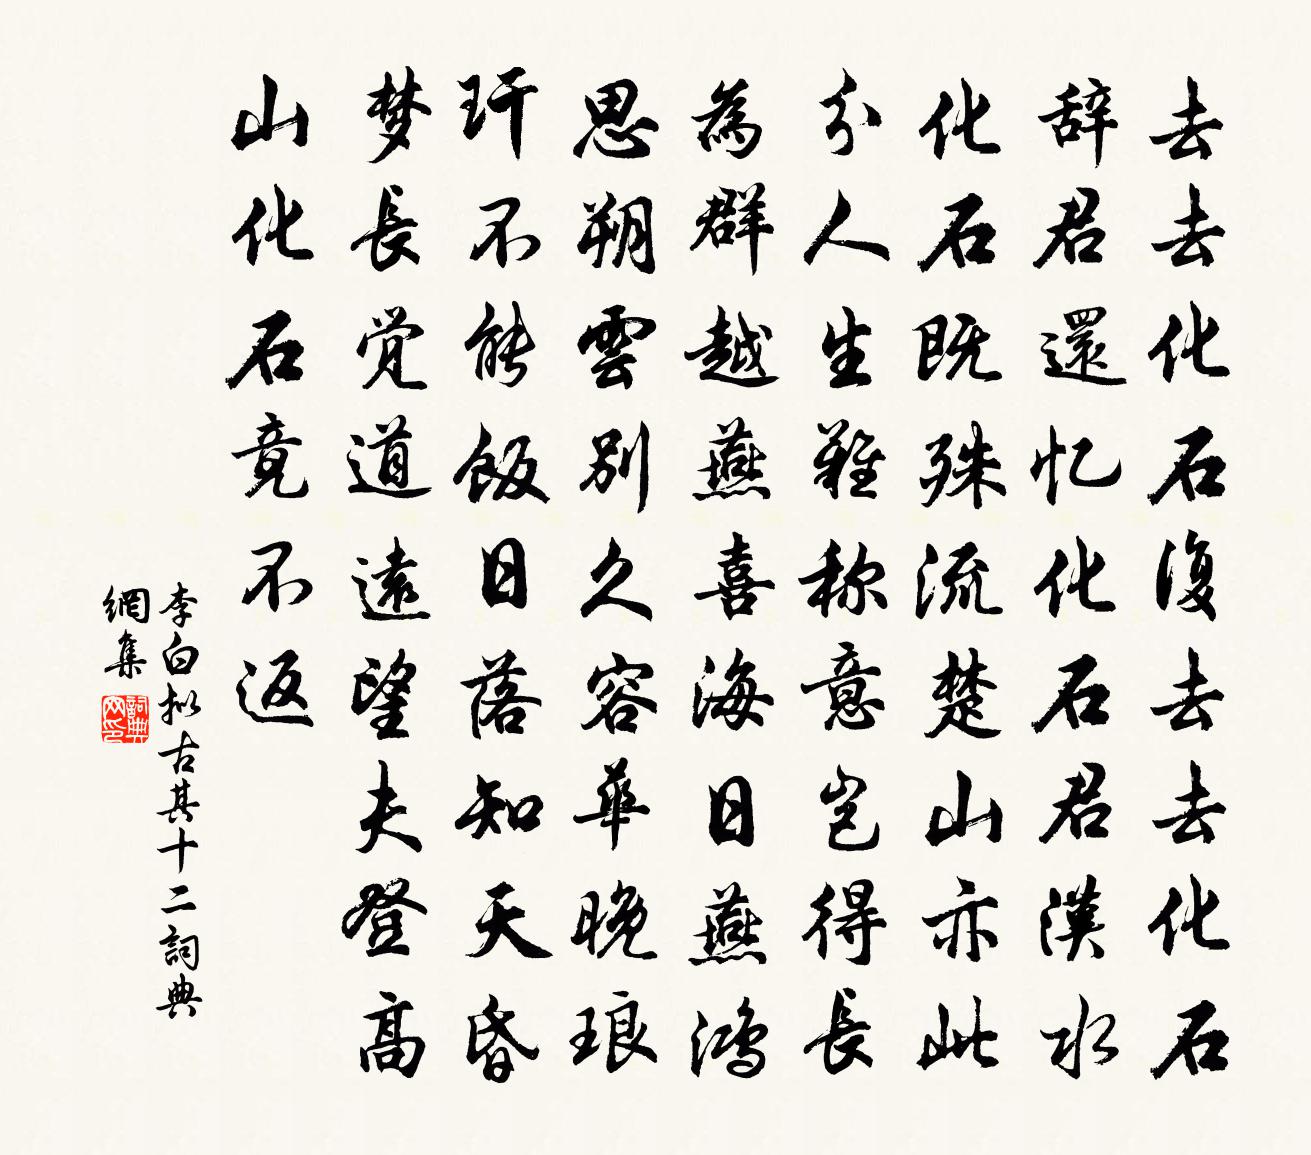 去去化石復去去化石
辞君還忆化石君漢水
化石既殊流楚山亦此
分人生難称意岂得長
為群越燕喜海日燕鸿
思朔雲別久容華晚琅
玕不能飯日落知天昏
梦長覚道遠望夫登高
山化石竟不返
李白拟古其十二詞典
網集
詞典
网印